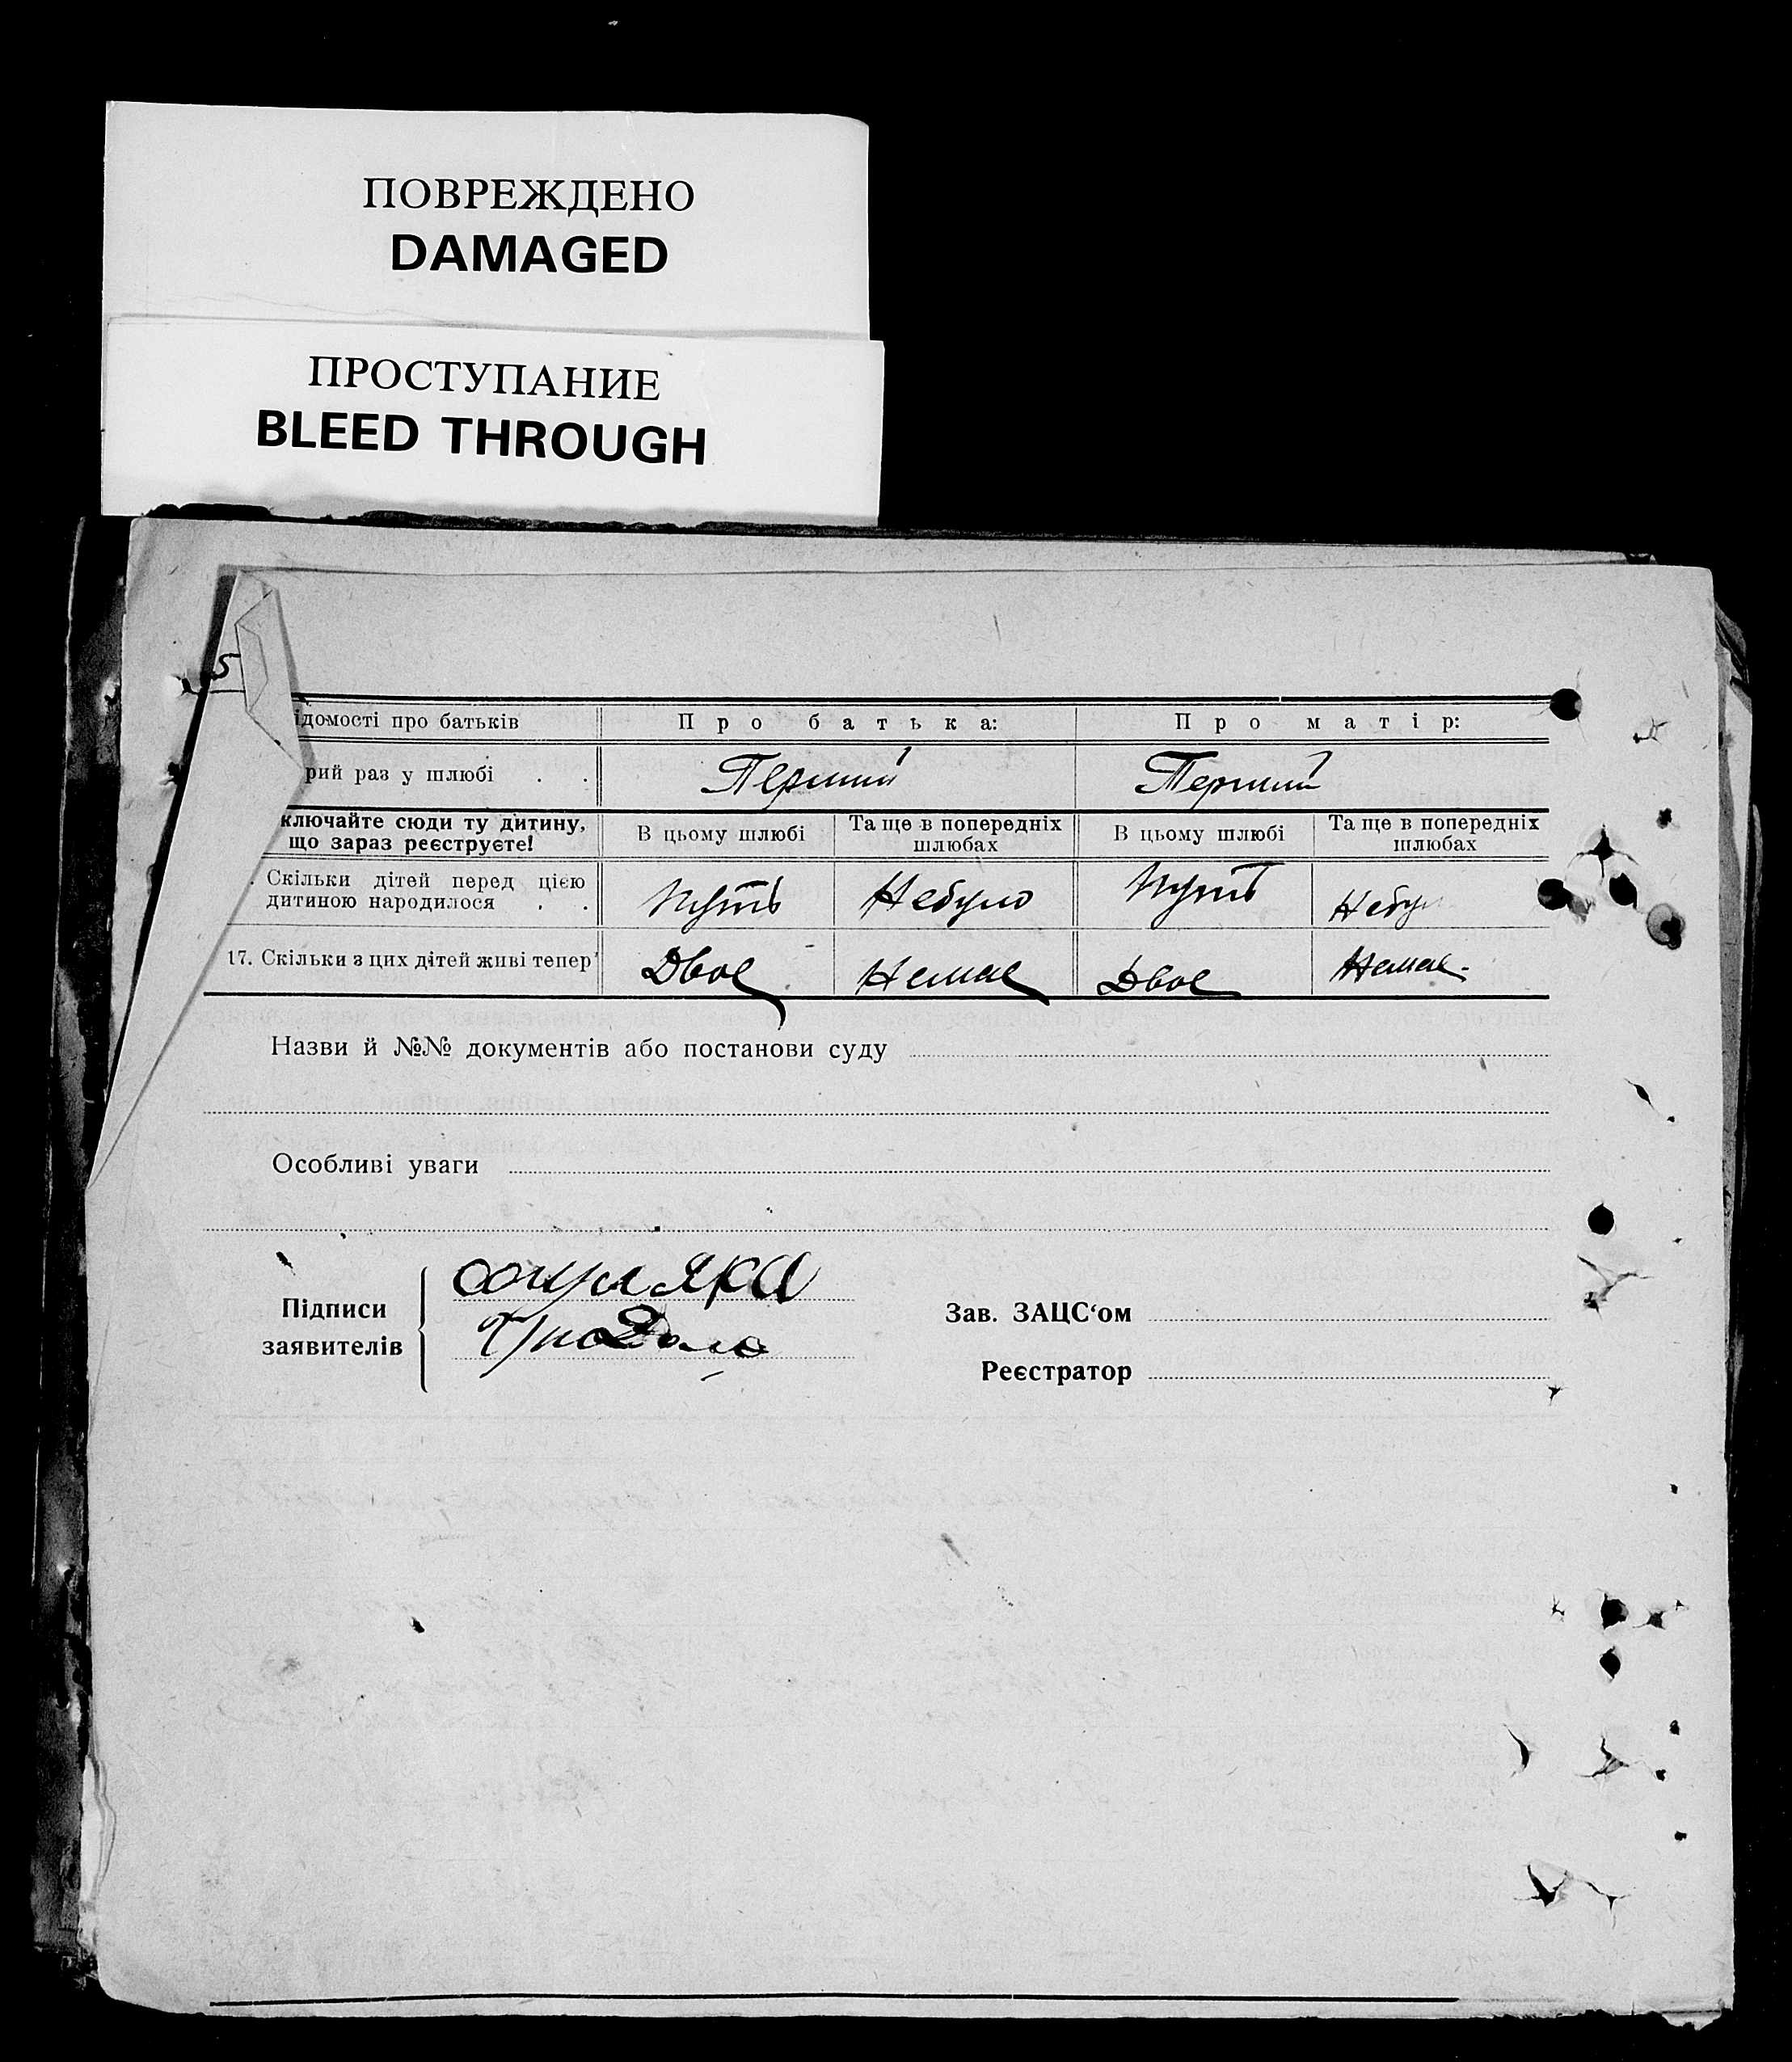 ПОВРЕЖДЕНО
DAMAGED
ПРОСТУПАНИЕ
BLEED THROUGH
5
ідомості про батьків П р о б а т ь к а: П р о м а т і р:
рий раз у шлюбі . . Перший Перший
ключайте сюди ту дитину, що зараз реєструєте! В цьому шлюбі Та ще в попередніх шлюбах В цьому шлюбі Та ще в попередніх шлюбах
. Скільки дітей перед цією
дитиною народилося . . Небуло Небул
17. Скільки з цих дітей живі тепер Двоє Немає Двоє Немає
Назви й №№ документів або постанови суду
Особливі уваги
Підписи
заявителів
Зав. ЗАЦС‘ом
Реєстратор